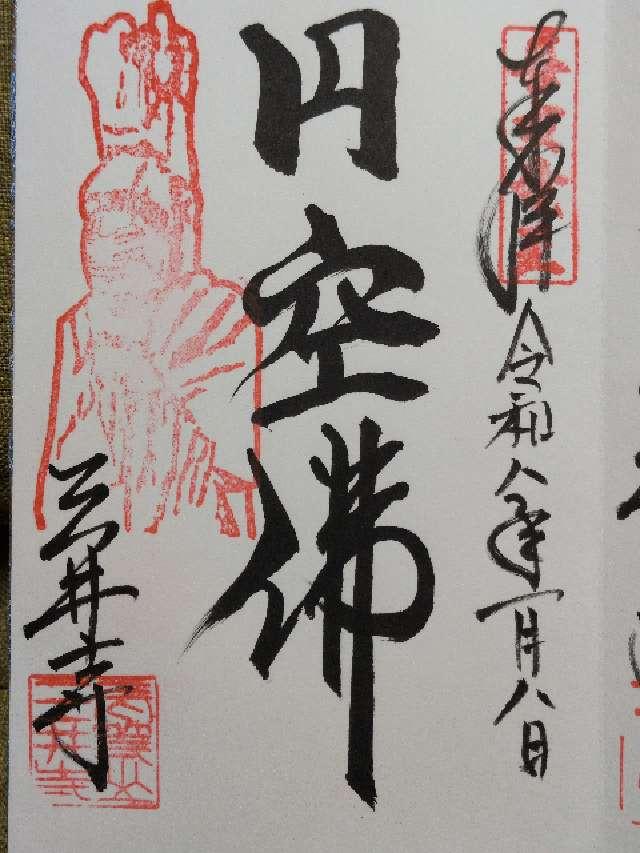 奉拝
令和八年一月八日
円空佛
三井寺